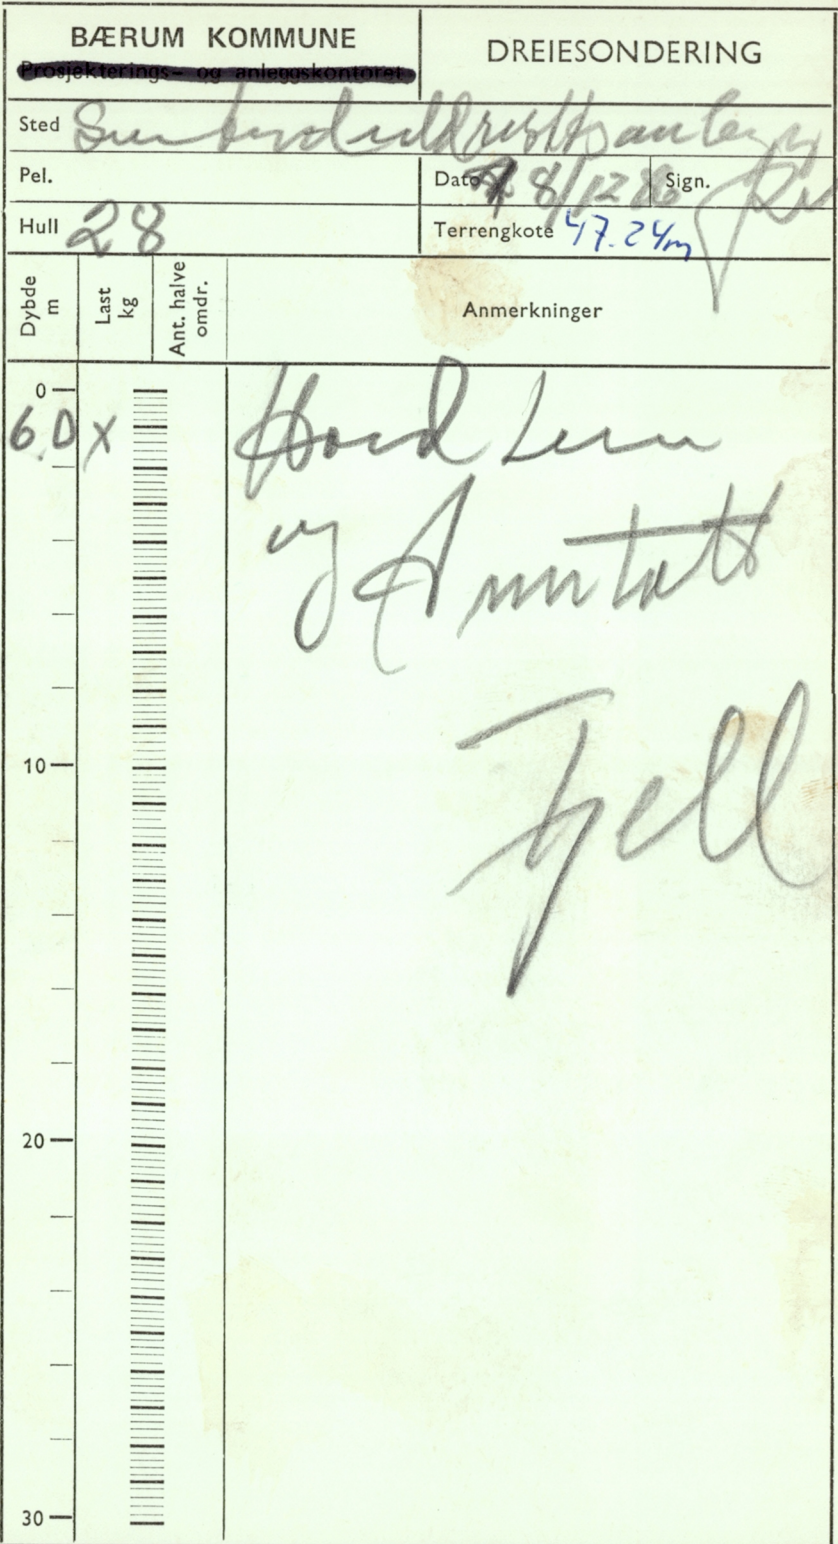 BÆRUM KOMMUNE
Prosjekterings- og anleggskontoret
DREIESONDERING
Sted
Pel.
Dato 8/12 86 Sign.
Hull 28
Terrengkote 47.24m
Dybde m
Last kg
Ant. halve omdr.
Anmerkninger
0
6.0 X
Hard Leire
og Anntatt
Fjell
10
20
30